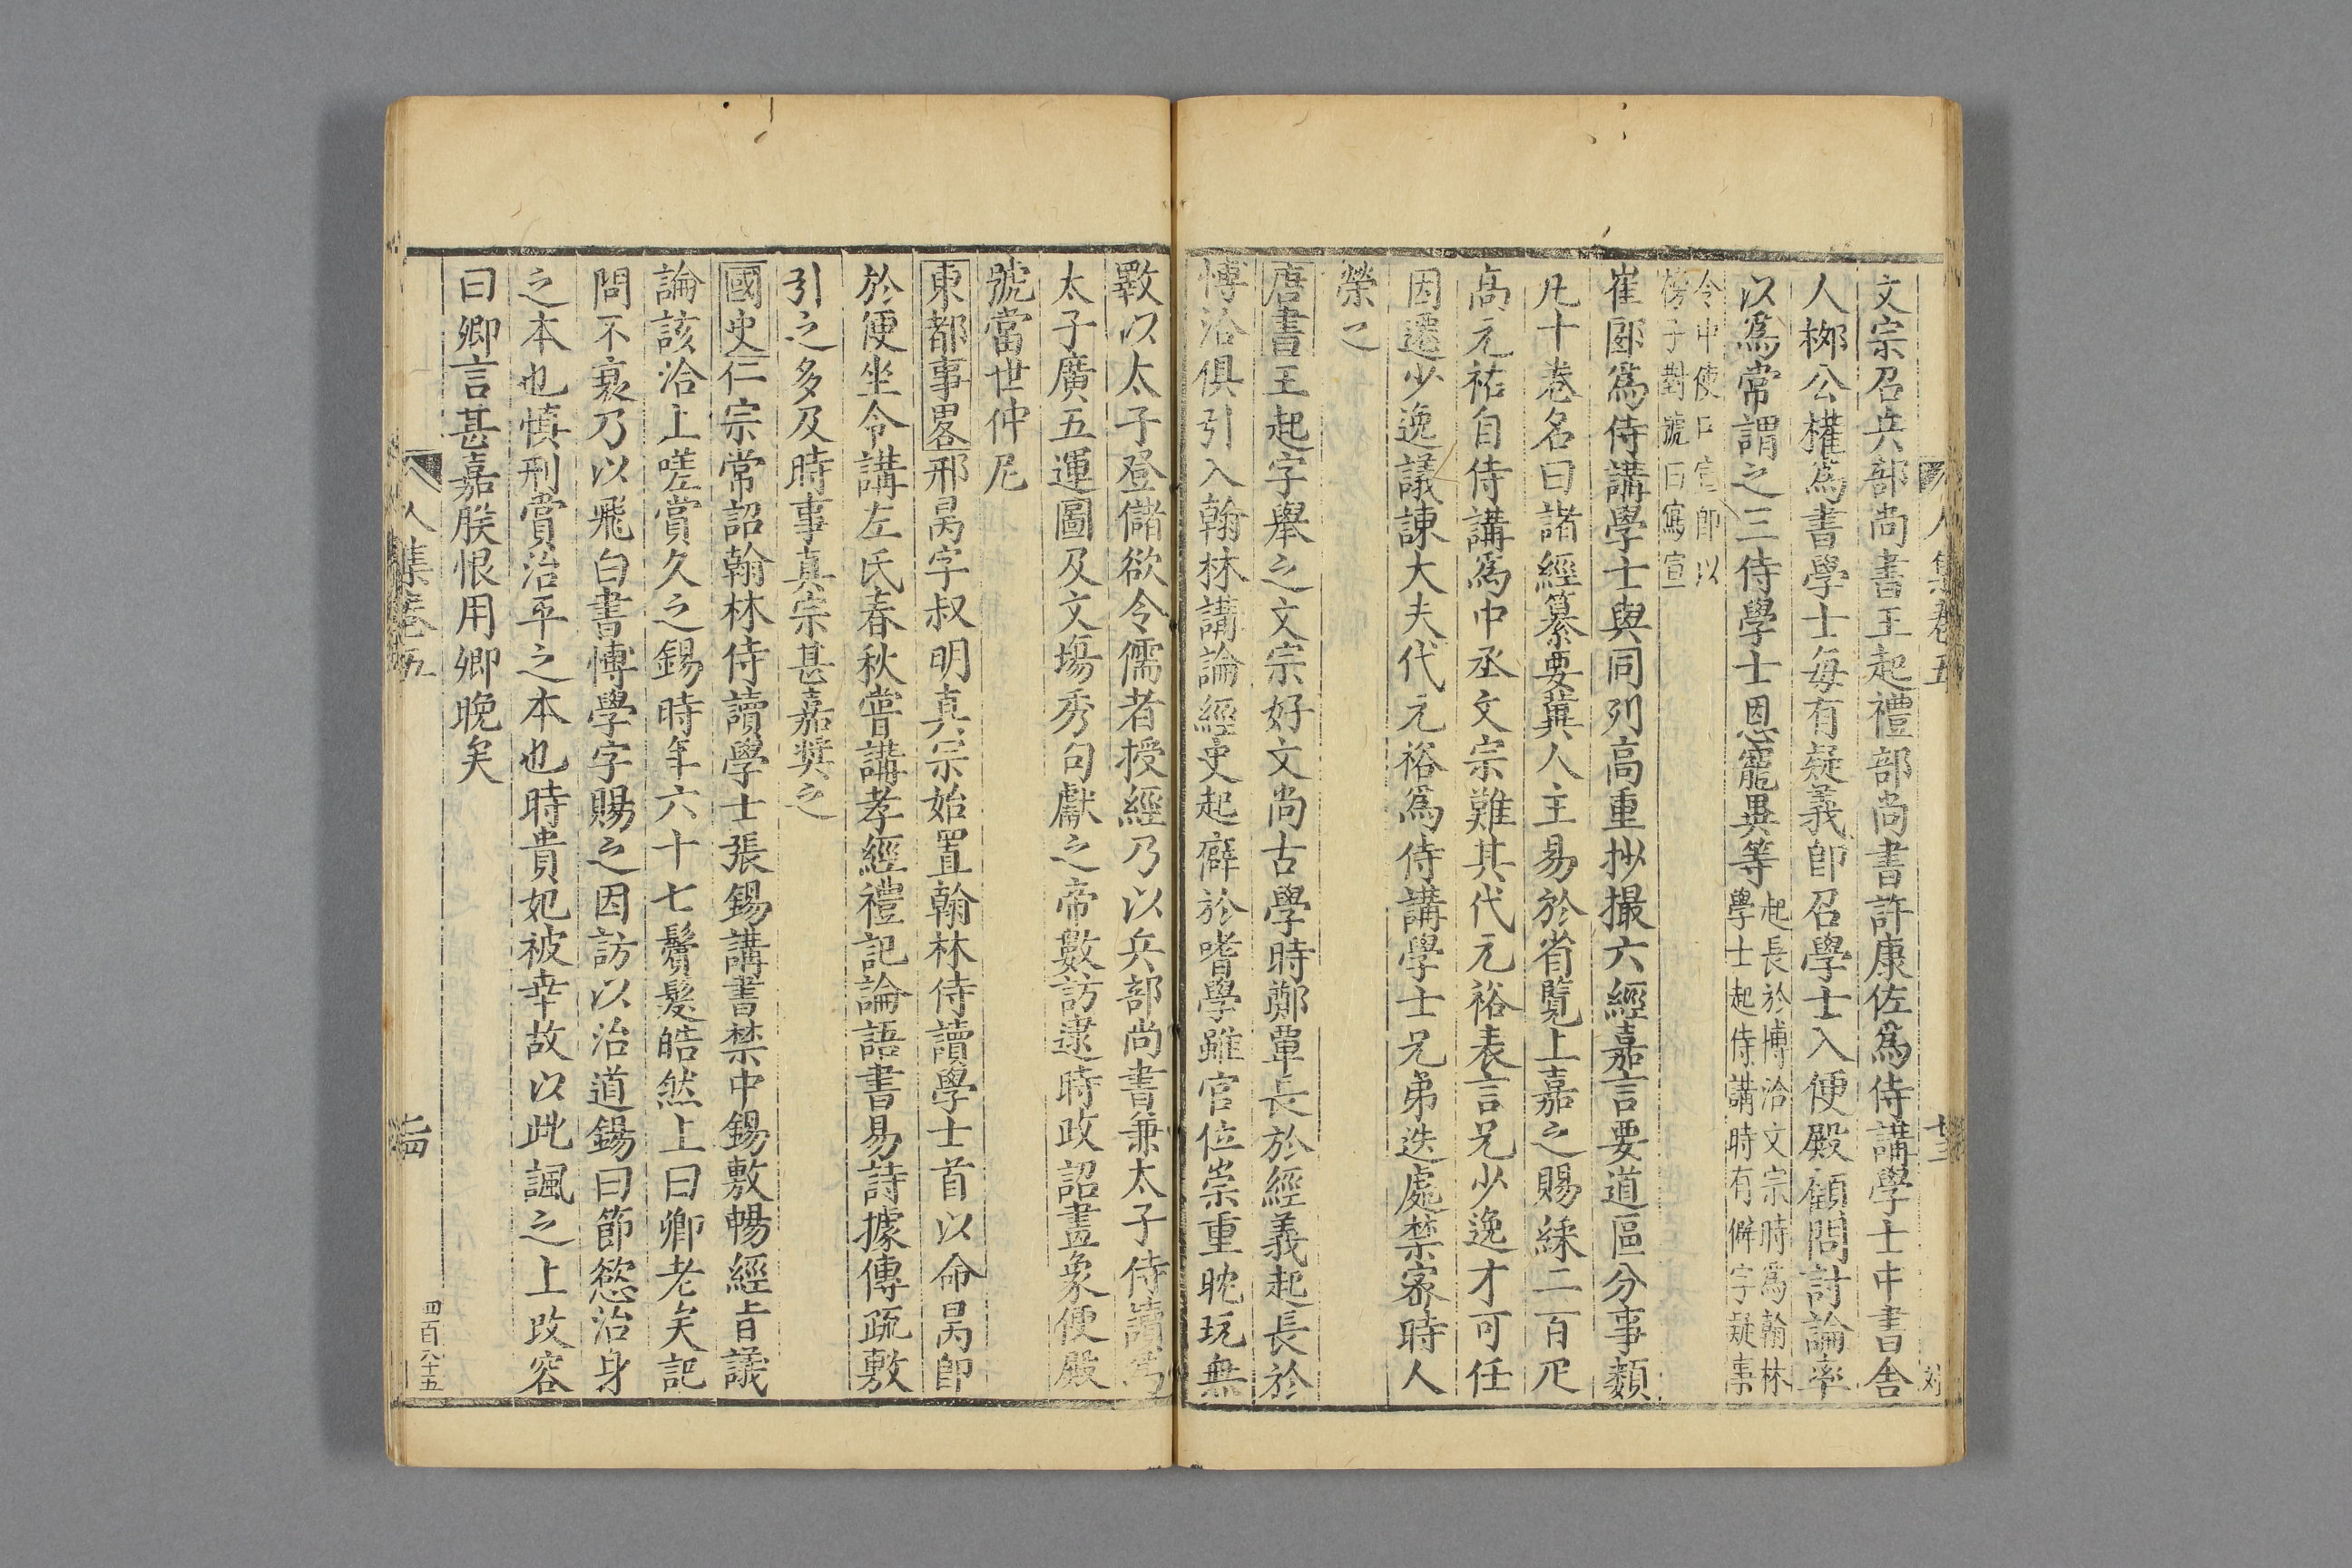 文宗召兵部尚書王起禮部尚書許康佐爲侍講學士中書舍
人栁公權爲書學士每有疑義即召學士入便殿顧問討論率
以爲常謂之三侍學士恩寵異等起長於博洽文宗時爲翰林
學士起侍講時有僻字疑事
令中使口宣即以
榜子對號曰寫宣
崔郾爲侍講學士與同列高重抄撮六經嘉言要道區分事類
凡十卷名曰諸經纂要冀人主易於省覽上嘉之賜綵二百疋
高元祐自侍講爲中丞文宗難其代元裕表言兄少逸才可任
因遷少逸議諫大夫代元裕爲侍講學士兄弟迭處禁密時人
榮之
唐書王起字舉之文宗好文尚古學時鄭覃長於經義起長於
博洽俱引入翰林講論經史起癖於嗜學雖官位崇重耽玩無
斁以太子登儲欲令儒者授經乃以兵部尚書兼太子侍讀爲
太子廣五運圖及文塲秀句獻之帝數訪逮時政詔畫象便殿
號當世仲尼
東都事畧邢昺字叔明真宗始置翰林侍讀學士首以命昺即
於便坐令講左氏春秋嘗講孝經禮記論語書易詩據傳疏敷
引之多及時事真宗甚嘉奬之
國史仁宗常詔翰林侍讀學士張錫講書禁中錫敷暢經旨議
論該洽上嗟賞久之錫時年六十七鬢髮皓然上曰卿老矣記
問不衰乃以飛白書博學字賜之因訪以治道錫曰節慾治身
之本也慎刑賞治平之本也時貴妃被幸故以此諷之上改容
曰卿言甚嘉朕恨用卿晚矣
人集卷五
四百八十五